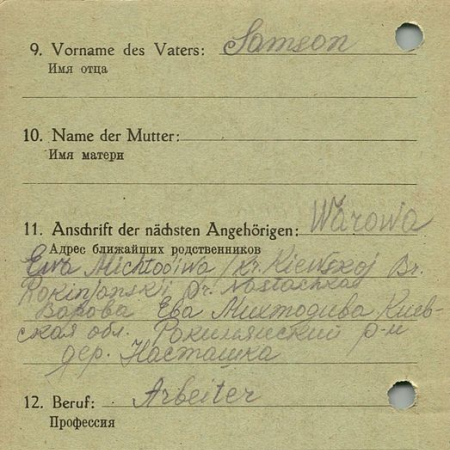 9. Vorname des Vaters: Samson
Имя отца
10. Name der Mutter:
Имя матери
11. Anschrift der nächsten Angehörigen: Warowa
Адрес ближайших родственников
Ewa Michtodiwa / kr. Kiewskoj Br.
Rokinjanskij Dr. Nostachka
Варова Ева Михтодива Киев-
ская обл. Рокитянский р-н
дер. Насташка
12. Beruf: Arbeiter
Профессия